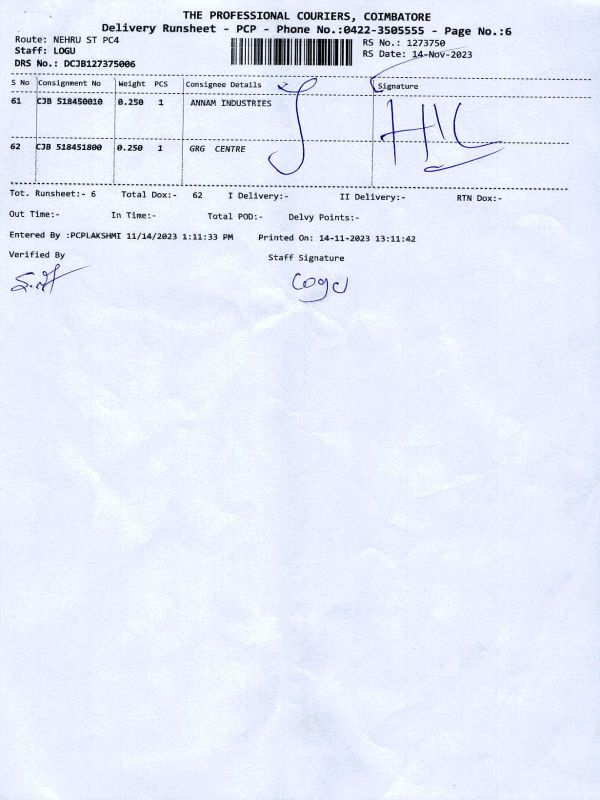 THE PROFESSIONAL COURIERS, COIMBATORE
Delivery Runsheet - PCP - Phone No.:0422-3505555 - Page No.:6
Route: NEHRU ST PC4
RS No.: 1273750
Staff: LOGU
RS Date: 14-Nov-2023
DRS No.: DCJB127375006
S No Consignment No Weight PCS Consignee Details Signature
61 CJB 518450010 0.250 1 ANNAM INDUSTRIES
62 CJB 518451800 0.250 1 GRG CENTRE
Tot. Runsheet:- 6 Total Dox:- 62 I Delivery:- II Delivery:- RTN Dox:-
Out Time:- In Time:- Total POD:- Delvy Points:-
Entered By :PCPLAKSHMI 11/14/2023 1:11:33 PM Printed On: 14-11-2023 13:11:42
Verified By Staff Signature